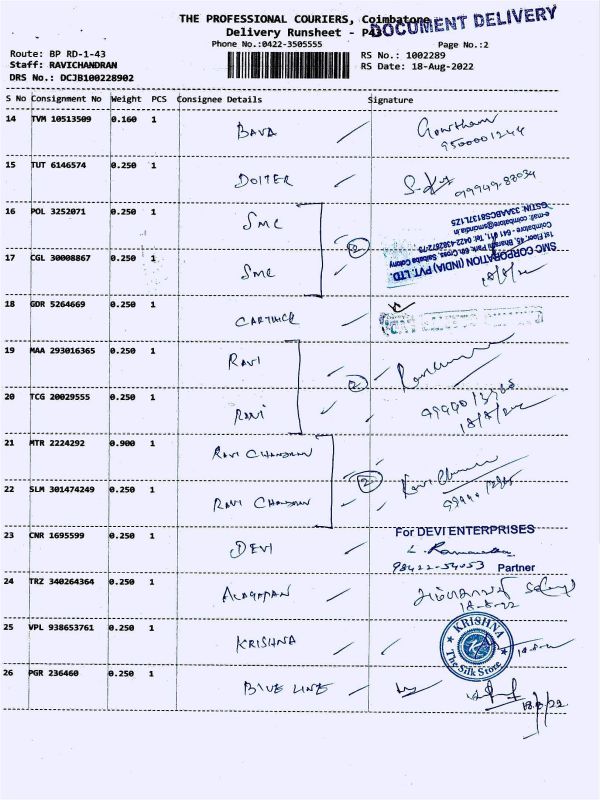 THE PROFESSIONAL COURIERS, Coimbatore
DOCUMENT DELIVERY
Delivery Runsheet - P43
Phone No.:0422-3505555
Page No.:2
Route: BP RD-1-43
RS No.: 1002289
Staff: RAVICHANDRAN
RS Date: 18-Aug-2022
DRS No.: DCJB100228902
S No Consignment No Weight PCS Consignee Details Signature
14 TVM 10513509 0.160 1 BAVA Gowtham
9500001244
15 TUT 6146574 0.250 1 DOITER
99949-88034
16 POL 3252071 0.250 1 SMC
SMC CORPORATION (INDIA) PVT. LTD.
1st Floor, 45, Bharathi Park 6th Cross, Saibaba Colony
Coimbatore - 641 011. Tel: 0422-4382872/75
e-mail: coimbatore@smcindia.in
GSTIN: 33AABCS8137L1Z5
17 CGL 30008867 0.250 1 SMC 2
18 GDR 5264669 0.250 1 CARTHICK
19 MAA 293016365 0.250 1 RAVI 2
20 TCG 20029555 0.250 1 RAVI
18/8/22
21 MTR 2224292 0.900 1 RAVI CHANDRAN
22 SLM 301474249 0.250 1 RAVI CHANDRAN 2
23 CNR 1695599 0.250 1 DEVI
For DEVI ENTERPRISES
98422-54053 Partner
24 TRZ 340264364 0.250 1 ALAGAPPAN
18-8-22
25 VPL 938653761 0.250 1 KRISHNA
KRISHNA
The Silk Store
26 PGR 236460 0.250 1 BLUE LINE
18/8/22